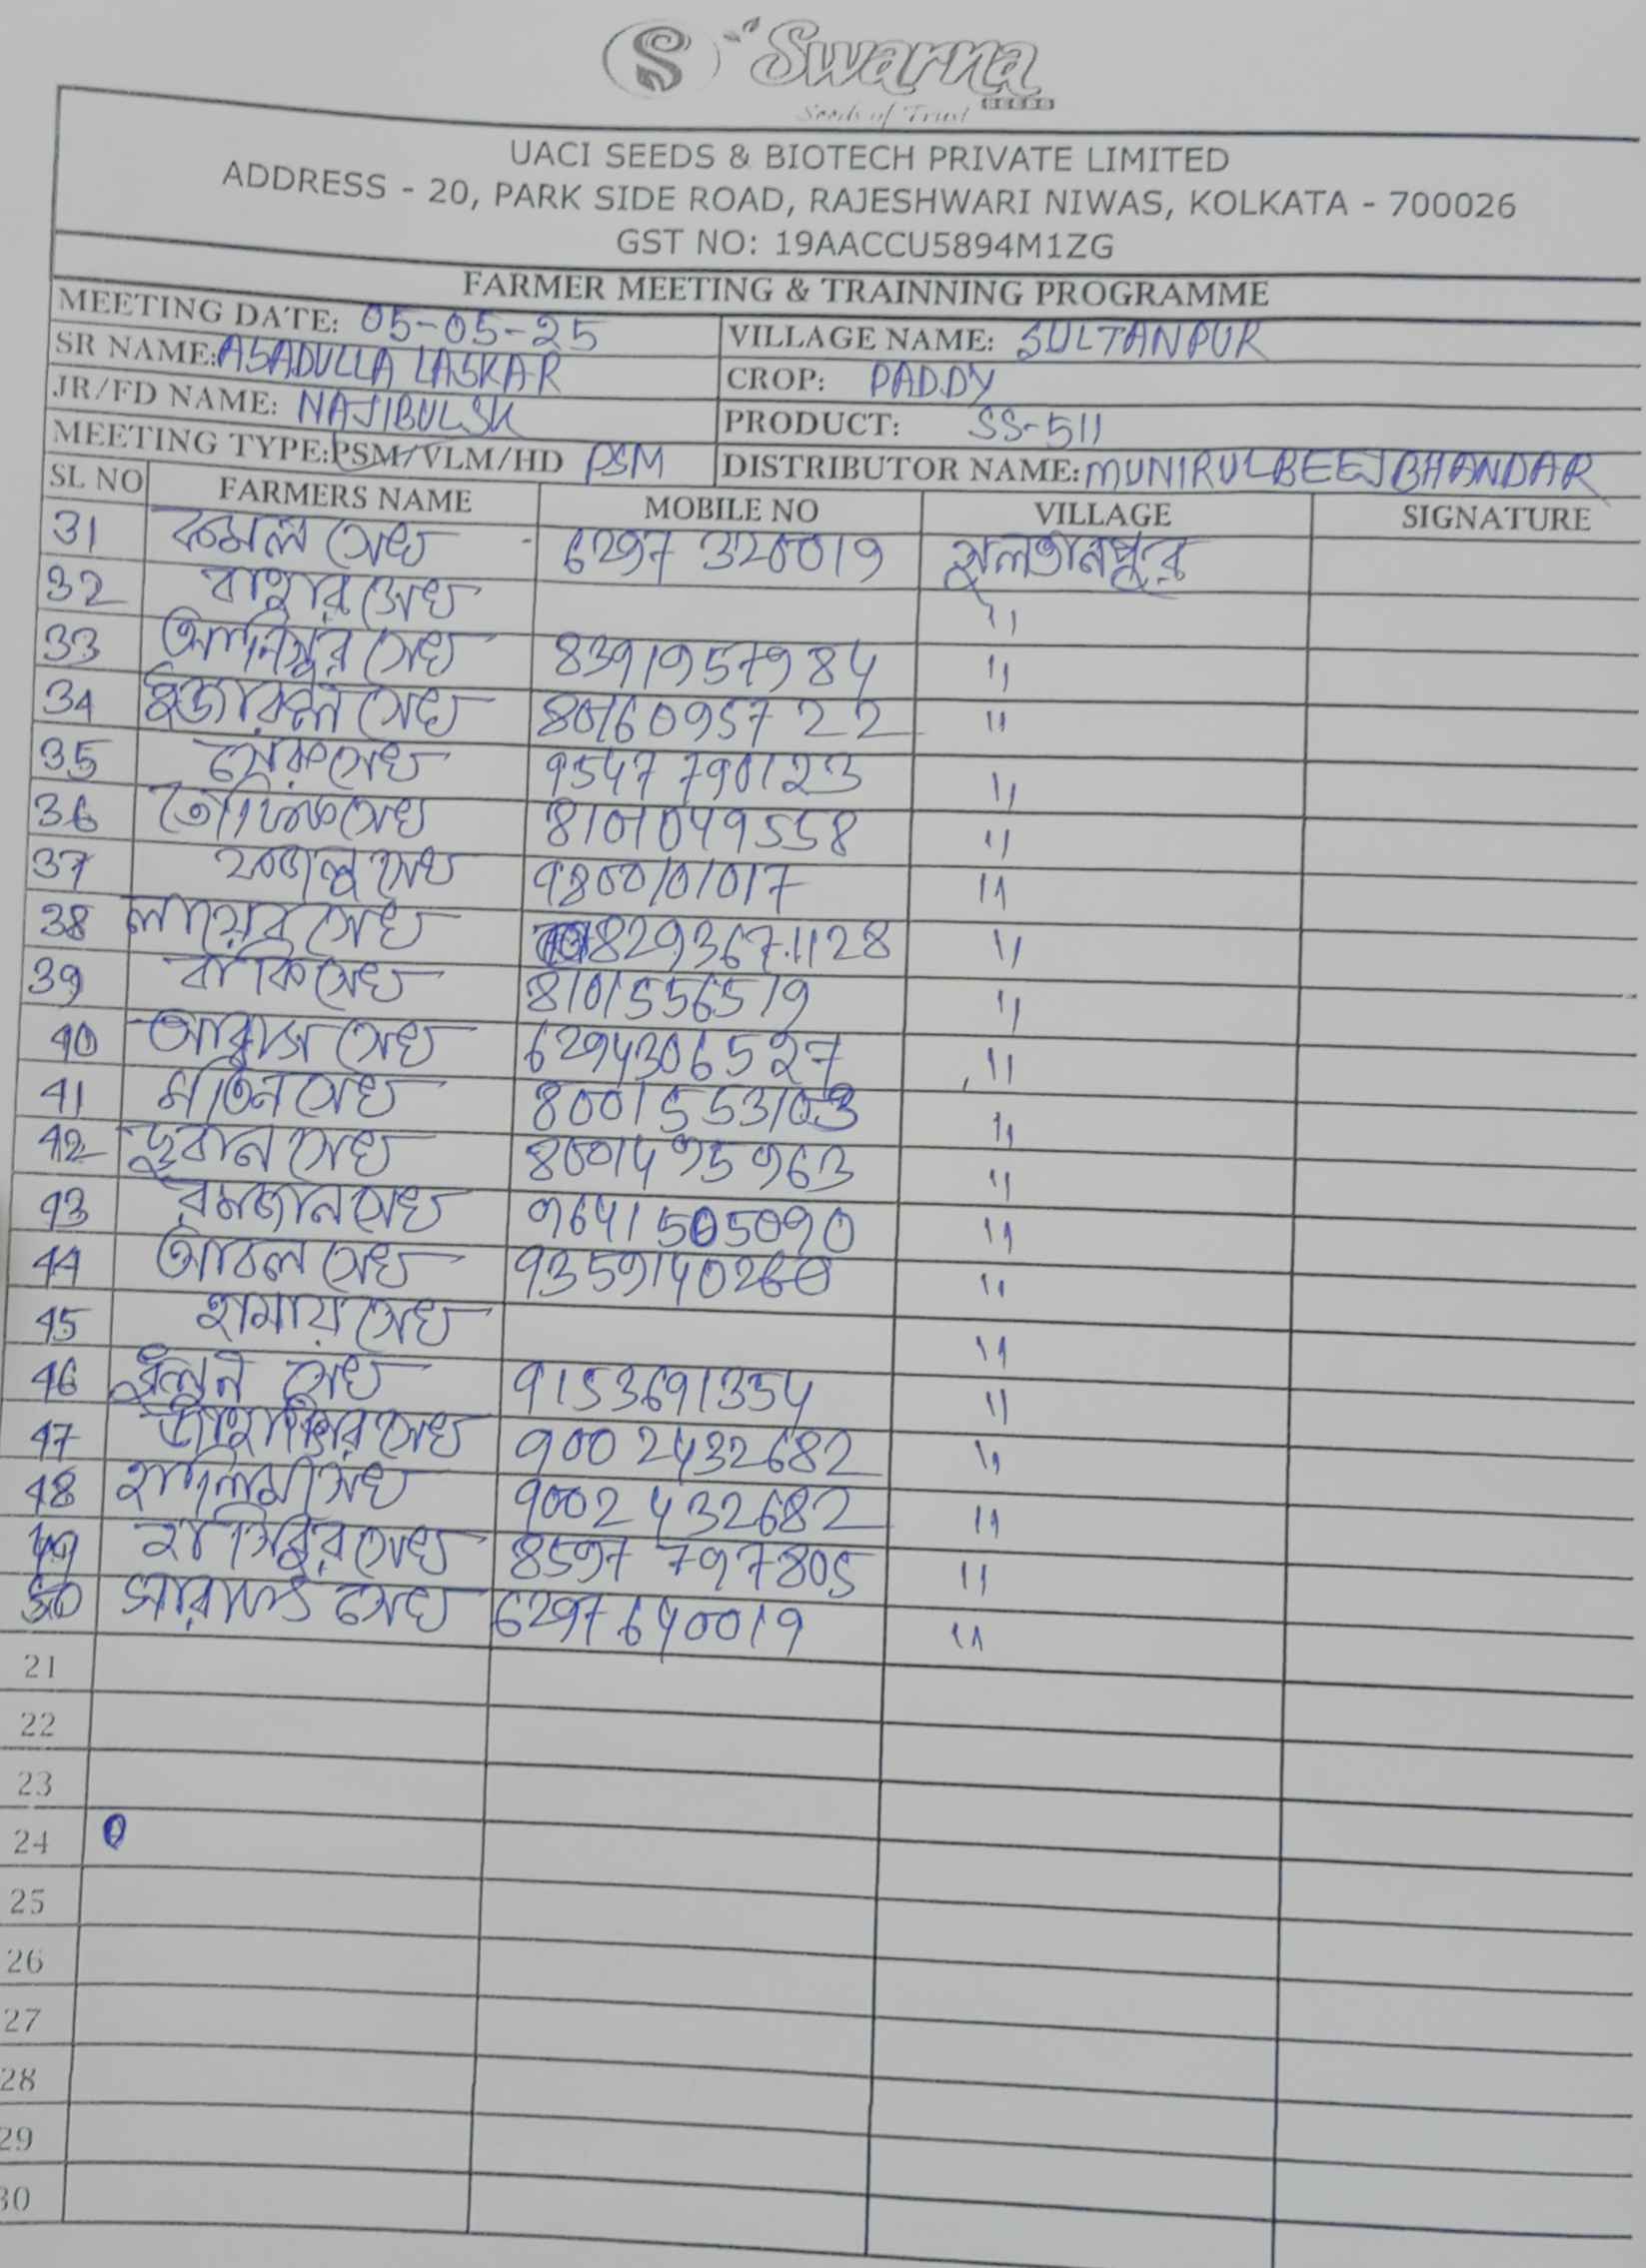 Swarna
Seeds of Trust
UACI SEEDS & BIOTECH PRIVATE LIMITED
ADDRESS - 20, PARK SIDE ROAD, RAJESHWARI NIWAS, KOLKATA - 700026
GST NO: 19AACCU5894M1ZG
FARMER MEETING & TRAINNING PROGRAMME
MEETING DATE: 05-05-25 VILLAGE NAME: SULTANPUR
SR NAME: ASADULLA LASKAR CROP: PADDY
JR/FD NAME: NAJIBUL SK PRODUCT: SS-511
MEETING TYPE: PSM/VLM/HD PSM DISTRIBUTOR NAME: MUNIRUL BEEJ BHANDAR
SL NO FARMERS NAME MOBILE NO VILLAGE SIGNATURE
31 কমল সেখ 6297 320019 সুলতানপুর
32 সেখ "
33 সেখ 8391957984 "
34 সেখ 8016095722 "
35 সেখ 9547790123 "
36 সেখ 8101049558 "
37 সেখ 9800101017 "
38 সেখ 8293671128 "
39 বাকি সেখ 8101556519 "
40 সেখ 6294306527 "
41 মতিন সেখ 8001553103 "
42 সেখ 8001495963 "
43 রমজান সেখ 9641505090 "
44 সেখ "
45 সেখ "
46 সেখ 9153691354 "
47 সেখ 9002432682 "
48 সেখ 9002432682 "
49 হাসিবুর সেখ 8597797805 "
50 সেখ 6297640019 "
21
22
23
24
25
26
27
28
29
30